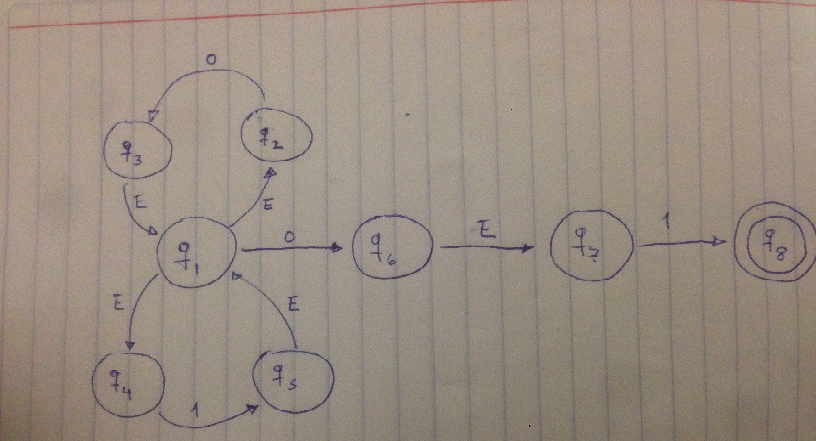 0
q3
q2
E
E
q1
0
q6
E
q7
1
q8
E
E
q4
q5
1